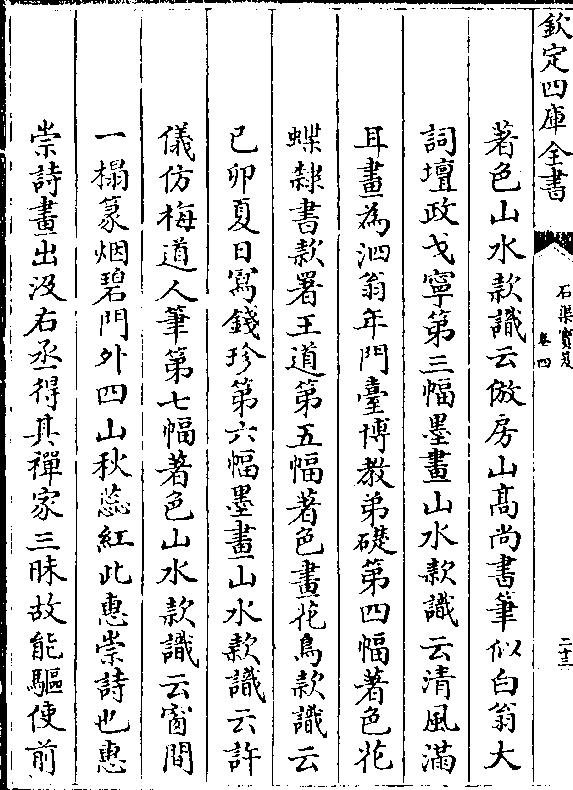 欽定四庫全書
石渠寶笈
卷四
二十三
著色山水款識云倣房山髙尚書筆似白翁大
詞壇政戈寧第三幅墨畫山水款識云清風滿
耳畫為泗翁年門臺博教弟礎第四幅著色花
蝶隸書款署王道第五幅著色畫花鳥款識云
已卯夏日寫錢珍第六幅墨畫山水款識云許
儀仿梅道人筆第七幅著色山水款識云窗間
一榻篆烟碧門外四山秋蕊紅此惠崇詩也惠
崇詩畫出没右丞得其禪家三昧故能驅使前